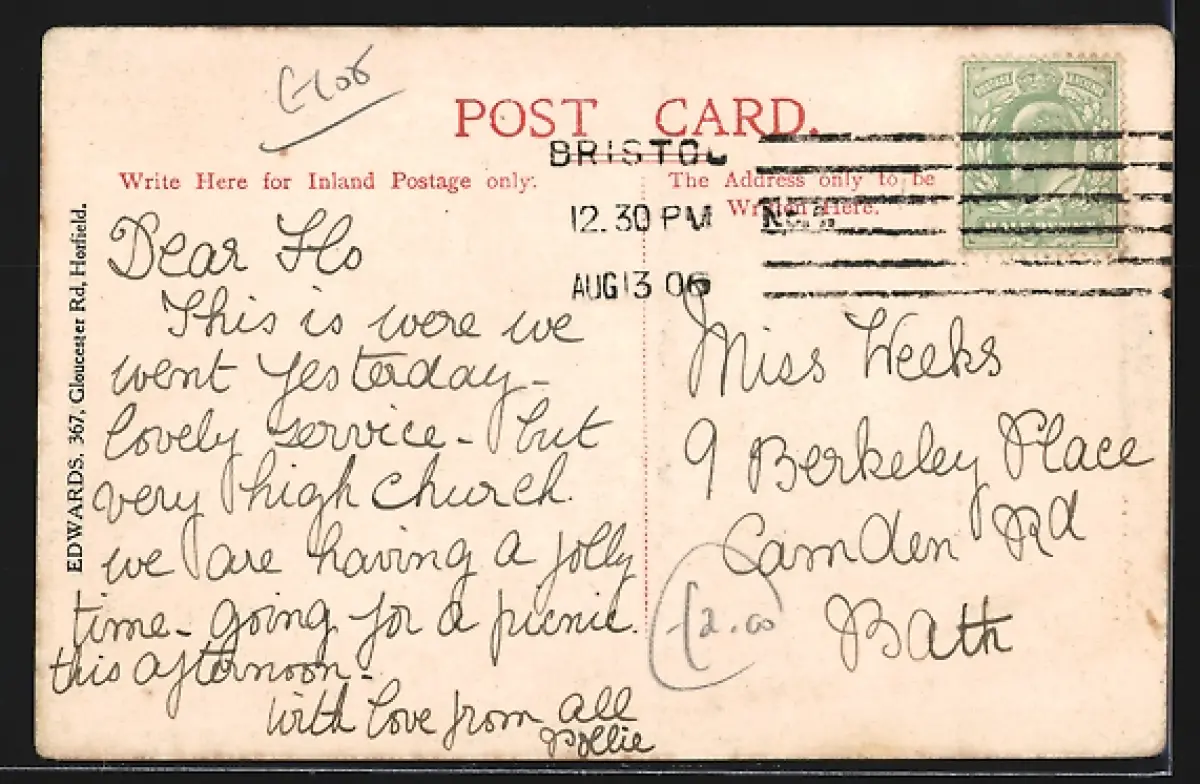 POST CARD.
BRISTOL
12.30 PM
AUG 13 06
Write Here for Inland Postage only.
The Address only to be
Written Here.
EDWARDS. 367, Gloucester Rd, Horfield.
Dear Flo
This is were we
went yesterday -
lovely service - but
very high church.
we are having a jolly
time - going for a picnic.
this afternoon -
with love from all
Pollie
Miss Weeks
9 Berkeley Place
Camden Rd
Bath
£2.00